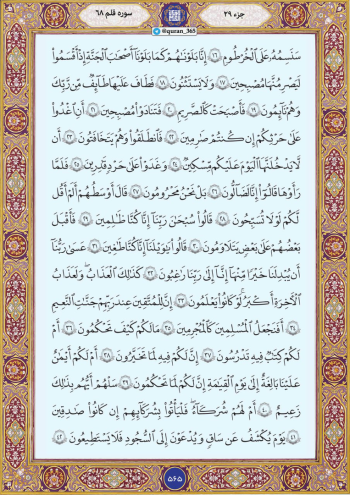 جزء ۲۹
سوره قلم ۶۸
@quran_365
سَنَسِمُهُ عَلَى ٱلْخُرْطُومِ ١٦ إِنَّا بَلَوْنَٰهُمْ كَمَا بَلَوْنَآ أَصْحَٰبَ ٱلْجَنَّةِ إِذْ أَقْسَمُوا۟
لَيَصْرِمُنَّهَا مُصْبِحِينَ ١٧ وَلَا يَسْتَثْنُونَ ١٨ فَطَافَ عَلَيْهَا طَآئِفٌ مِّن رَّبِّكَ
وَهُمْ نَآئِمُونَ ١٩ فَأَصْبَحَتْ كَٱلصَّرِيمِ ٢٠ فَتَنَادَوْا۟ مُصْبِحِينَ ٢١ أَنِ ٱغْدُوا۟
عَلَىٰ حَرْثِكُمْ إِن كُنتُمْ صَٰرِمِينَ ٢٢ فَٱنطَلَقُوا۟ وَهُمْ يَتَخَٰفَتُونَ ٢٣ أَن
لَّا يَدْخُلَنَّهَا ٱلْيَوْمَ عَلَيْكُم مِّسْكِينٌ ٢٤ وَغَدَوْا۟ عَلَىٰ حَرْدٍ قَٰدِرِينَ ٢٥ فَلَمَّا
رَأَوْهَا قَالُوٓا۟ إِنَّا لَضَآلُّونَ ٢٦ بَلْ نَحْنُ مَحْرُومُونَ ٢٧ قَالَ أَوْسَطُهُمْ أَلَمْ أَقُل
لَّكُمْ لَوْلَا تُسَبِّحُونَ ٢٨ قَالُوا۟ سُبْحَٰنَ رَبِّنَآ إِنَّا كُنَّا ظَٰلِمِينَ ٢٩ فَأَقْبَلَ
بَعْضُهُمْ عَلَىٰ بَعْضٍ يَتَلَٰوَمُونَ ٣٠ قَالُوا۟ يَٰوَيْلَنَآ إِنَّا كُنَّا طَٰغِينَ ٣١ عَسَىٰ رَبُّنَآ
أَن يُبْدِلَنَا خَيْرًا مِّنْهَآ إِنَّآ إِلَىٰ رَبِّنَا رَٰغِبُونَ ٣٢ كَذَٰلِكَ ٱلْعَذَابُ وَلَعَذَابُ
ٱلْءَاخِرَةِ أَكْبَرُ لَوْ كَانُوا۟ يَعْلَمُونَ ٣٣ إِنَّ لِلْمُتَّقِينَ عِندَ رَبِّهِمْ جَنَّٰتِ ٱلنَّعِيمِ
٣٤ أَفَنَجْعَلُ ٱلْمُسْلِمِينَ كَٱلْمُجْرِمِينَ ٣٥ مَا لَكُمْ كَيْفَ تَحْكُمُونَ ٣٦ أَمْ
لَكُمْ كِتَٰبٌ فِيهِ تَدْرُسُونَ ٣٧ إِنَّ لَكُمْ فِيهِ لَمَا تَخَيَّرُونَ ٣٨ أَمْ لَكُمْ أَيْمَٰنٌ
عَلَيْنَا بَٰلِغَةٌ إِلَىٰ يَوْمِ ٱلْقِيَٰمَةِ إِنَّ لَكُمْ لَمَا تَحْكُمُونَ ٣٩ سَلْهُمْ أَيُّهُم بِذَٰلِكَ
زَعِيمٌ ٤٠ أَمْ لَهُمْ شُرَكَآءُ فَلْيَأْتُوا۟ بِشُرَكَآئِهِمْ إِن كَانُوا۟ صَٰدِقِينَ
٤١ يَوْمَ يُكْشَفُ عَن سَاقٍ وَيُدْعَوْنَ إِلَى ٱلسُّجُودِ فَلَا يَسْتَطِيعُونَ ٤٢
۵۶۵